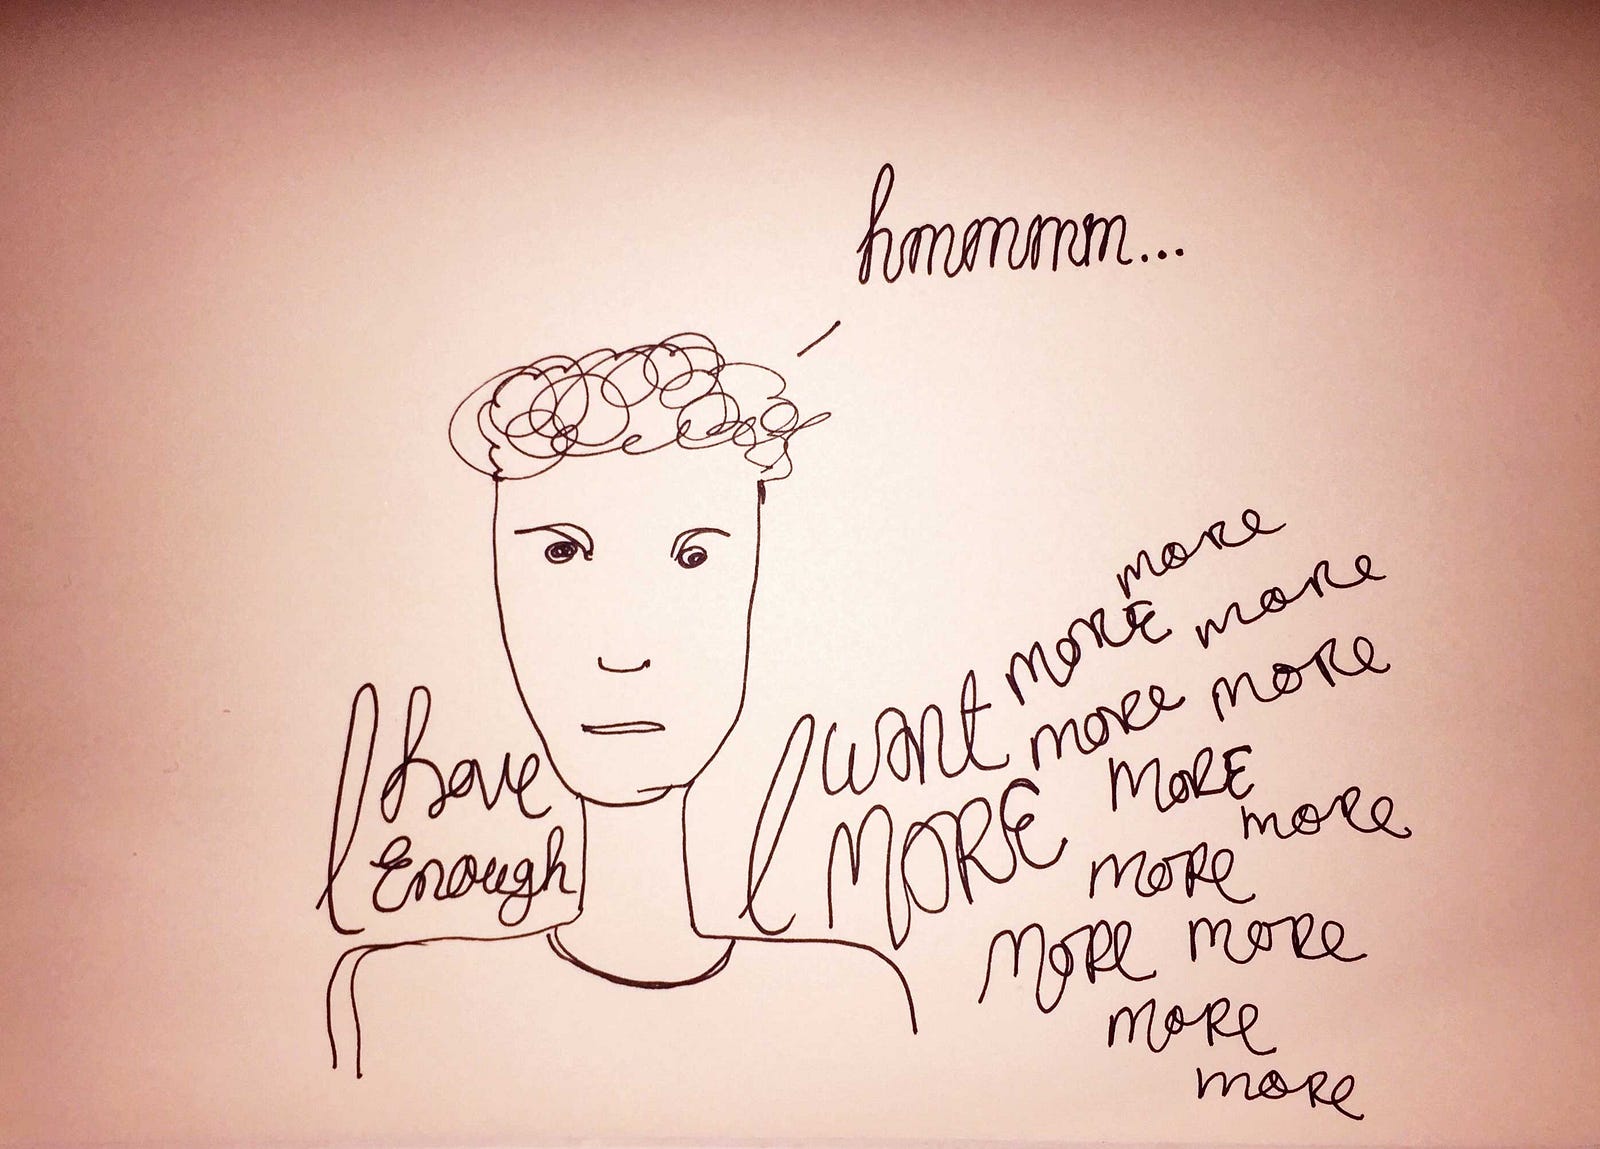 hmmmmm...
I have
Enough
more
I want MORE more
more more
MORE MORE
more
more
more more
more
more